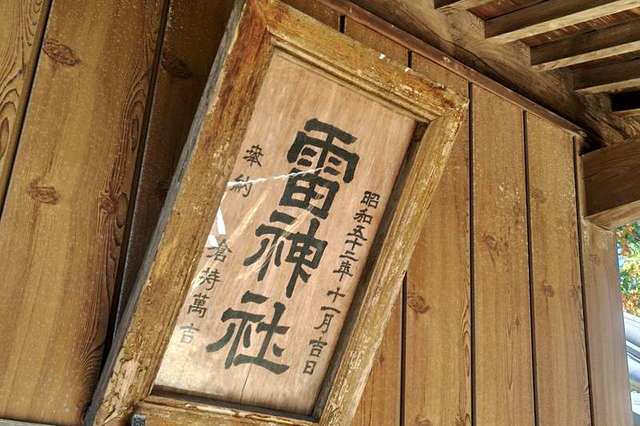 昭和五十二年十一月吉日
雷神社
奉納
倉持萬吉